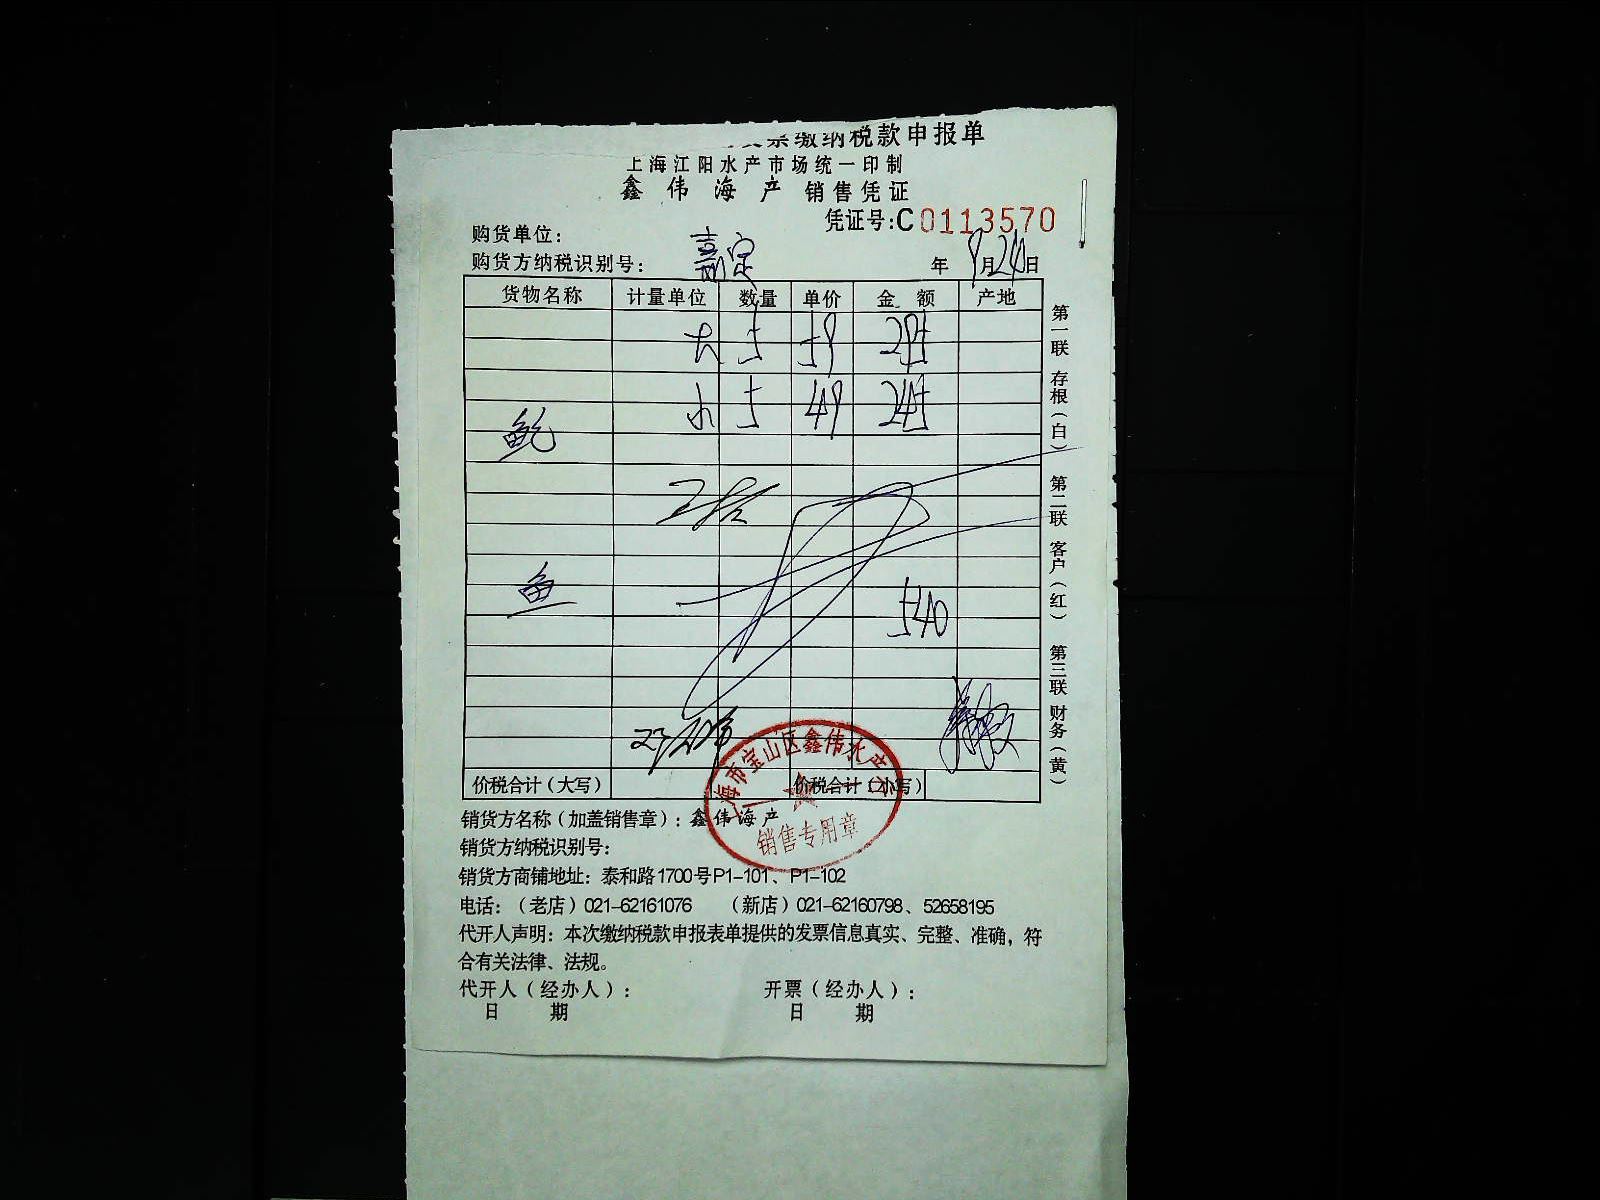 票缴纳税款申报单
上海江阳水产市场统一印制
鑫伟海产 销售凭证
凭证号:C0113570
购货单位:
嘉定
购货方纳税识别号: 年 9月24日
货物名称 计量单位 数量 单价 金额 产地
大 5 59 295
小 5 49 245
鲍
鱼
540
价税合计(大写) 价税合计(小写)
海市宝山区鑫伟水产
销售专用章
销货方名称(加盖销售章):鑫伟海产
销货方纳税识别号:
销货方商铺地址:泰和路1700号P1-101、P1-102
电话:(老店)021-62161076 (新店)021-62160798、52658195
代开人声明:本次缴纳税款申报表单提供的发票信息真实、完整、准确,符
合有关法律、法规。
代开人(经办人): 开票(经办人):
日 期 日 期
第一联 存根(白)
第二联 客户(红)
第三联 财务(黄)